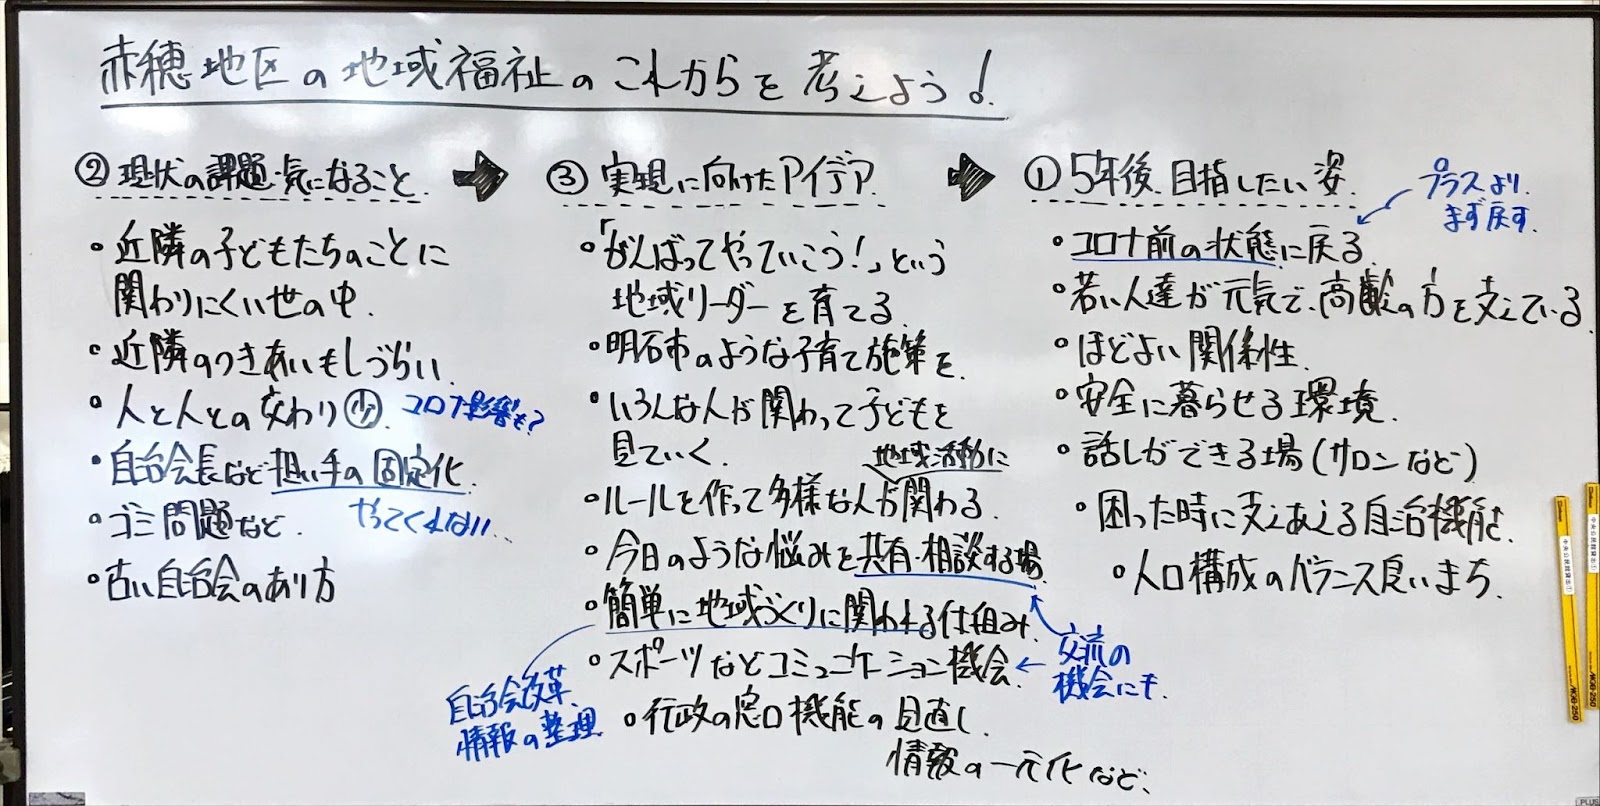 赤穂地区の地域福祉のこれからを考えよう!
②現状の課題・気になること
・近隣の子どもたちのことに
関わりにくい世の中.
・近隣のつきあいもしづらい.
・人と人との交わり㊛.
コロナ影響も?
・自治会長など担い手の固定化.
やってくれない…
・ゴミ問題など.
・古い自治会のあり方
③実現に向けたアイデア.
・「がんばってやっていこう!」という
地域リーダーを育てる.
・明石市のような子育て施策を.
・いろんな人が関わって子どもを
見ていく.
地域活動に
・ルールを作って多様な人が関わる.
・今日のような悩みを共有・相談する場.
・簡単に地域づくりに関われる仕組み.
・スポーツなどコミュニケーション機会.
交流の
機会にも.
自治会改革.
情報の整理
・行政の窓口機能の見直し.
情報の一元化など.
①5年後.目指したい姿.
プラスより.
まず戻す.
・コロナ前の状態に戻る.
・若い人達が元気で、高齢の方を支えている.
・ほどよい関係性.
・安全に暮らせる環境.
・話しができる場(サロンなど)
・困った時に支えあえる自治機能を.
・人口構成のバランス良いまち.
PLUS